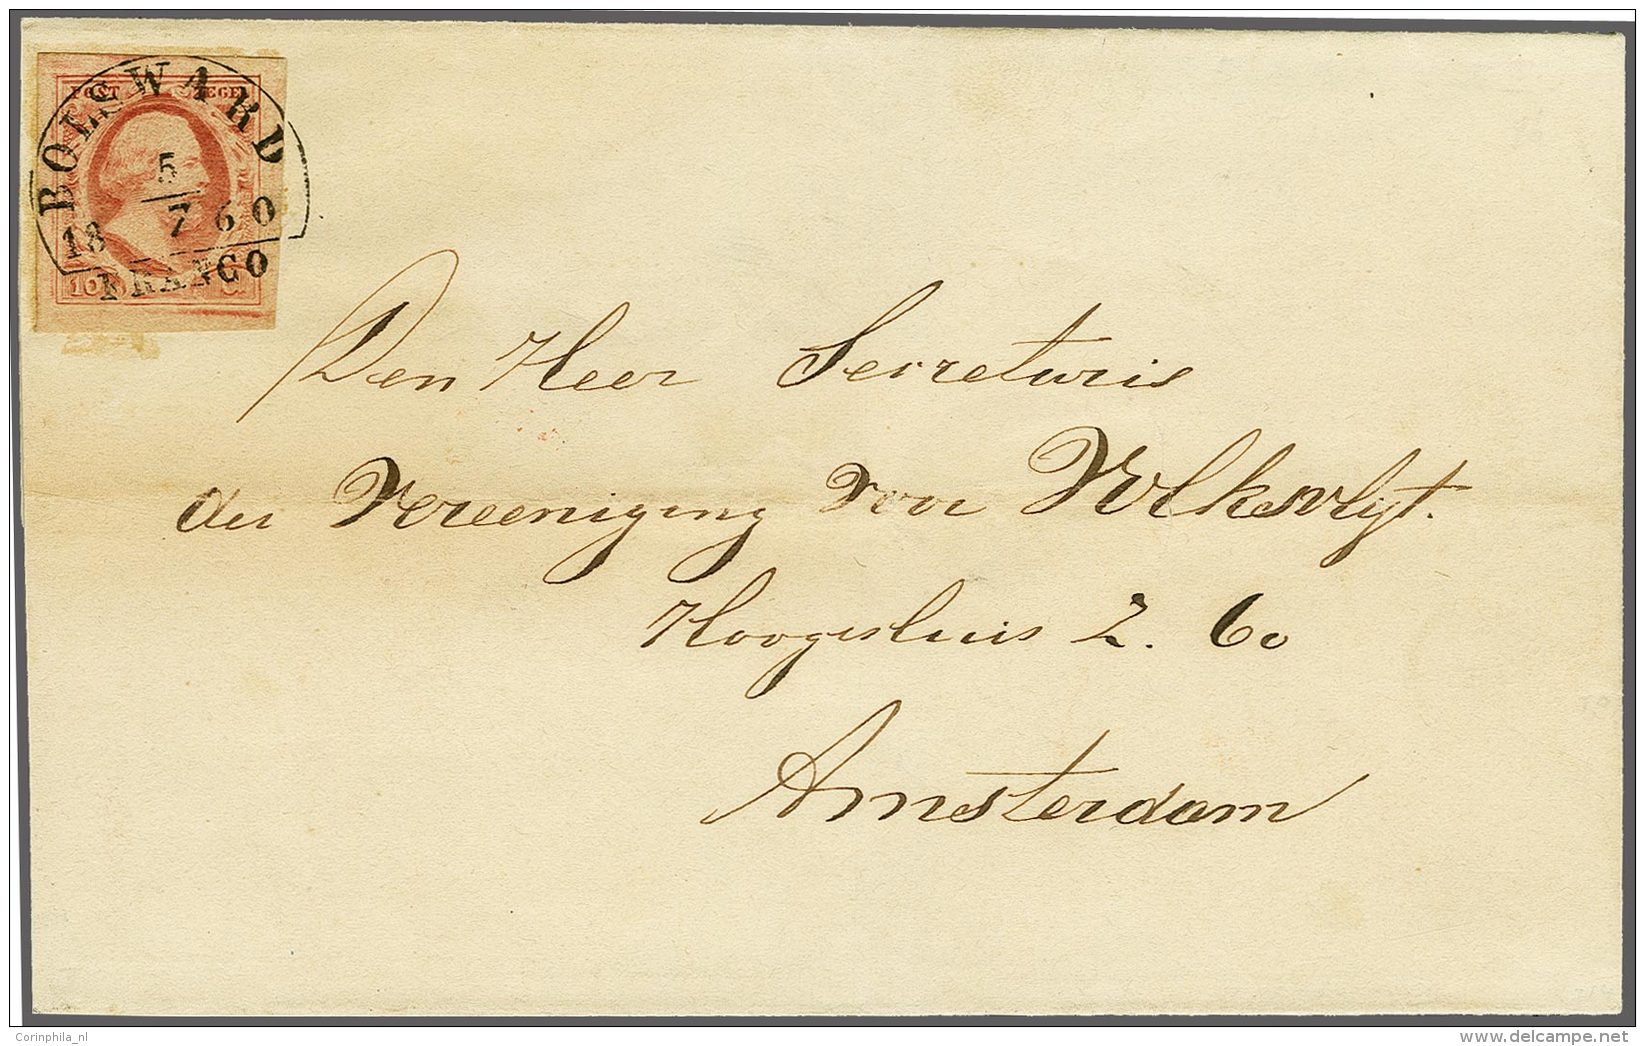 POST ZEGEL
BOLSWARD
5
18 7 60
FRANCO
10 C
Den Heer Secretaris
der Vereeniging voor Volksvlijt.
Hoogesluis Z. 60
Amsterdam
Corinphila_nl
delcampe.net